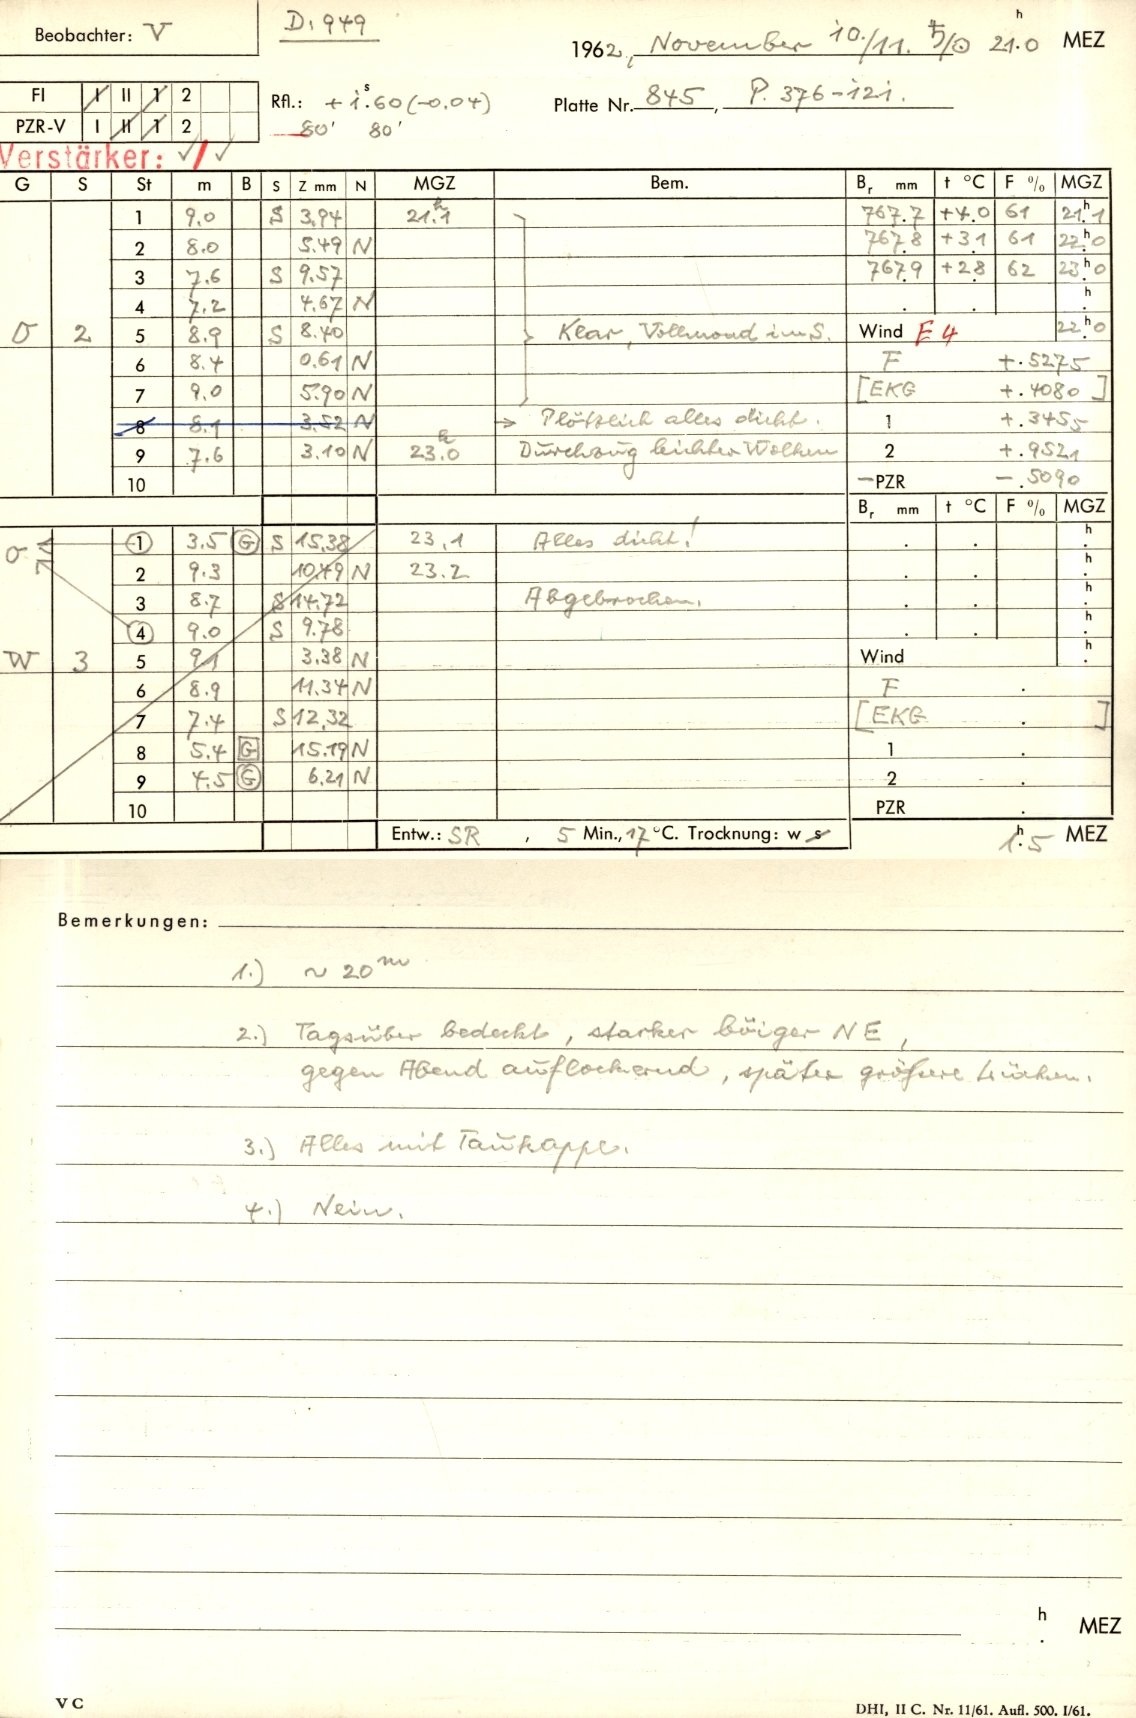 Beobachter: V
D. 949
1962, November 10./11. ♄/☉ 21.ʰ0 MEZ
FI I II 1 2
PZR-V I II 1 2
Rfl.: +1ˢ.60 (-0.04)
80' 80'
Platte Nr. 845, P. 376-121.
Verstärker: ✓/✓
G S St m B S Z mm N MGZ Bem. Bᵣ mm t °C F % MGZ
1 9.0 S 3.94 21ʰ.1 767.7 +4.0 61 21ʰ.1
2 8.0 5.49 N 767.8 +3.1 61 22ʰ.0
3 7.6 S 9.57 767.9 +2.8 62 23ʰ.0
4 7.2 4.67 N . . h .
O 2 5 8.9 S 8.40 Klar, Vollmond im S. Wind E 4 22ʰ.0
6 8.4 0.61 N F +.5275
7 9.0 5.90 N [EKG +.4080]
8 8.1 3.52 N → Plötzlich alles dicht. 1 +.3455
9 7.6 3.10 N 23ʰ.0 Durchzug leichter Wolken 2 +.9521
10 -PZR -.5090
Bᵣ mm t °C F % MGZ
O 1 3.5 G S 15.38 23.1 Alles dicht! . . h .
2 9.3 10.49 N 23.2 . . h .
3 8.7 S 14.72 Abgebrochen. . . h .
4 9.0 S 9.78 . . h .
W 3 5 9.1 3.38 N Wind h .
6 8.9 11.34 N F .
7 7.4 S 12.32 [EKG . ]
8 5.4 G 15.19 N 1 .
9 4.5 G 6.21 N 2 .
10 PZR .
Entw.: SR , 5 Min., 17 °C. Trocknung: w s 1ʰ.5 MEZ
Bemerkungen:
1.) ~ 20ᵐ
2.) Tagsüber bedeckt, starker böiger NE,
gegen Abend auflockernd, später größere Lücken.
3.) Alles mit Taukappe.
4.) Nein.
h . MEZ
V C
DHI, II C. Nr. 11/61. Aufl. 500. I/61.